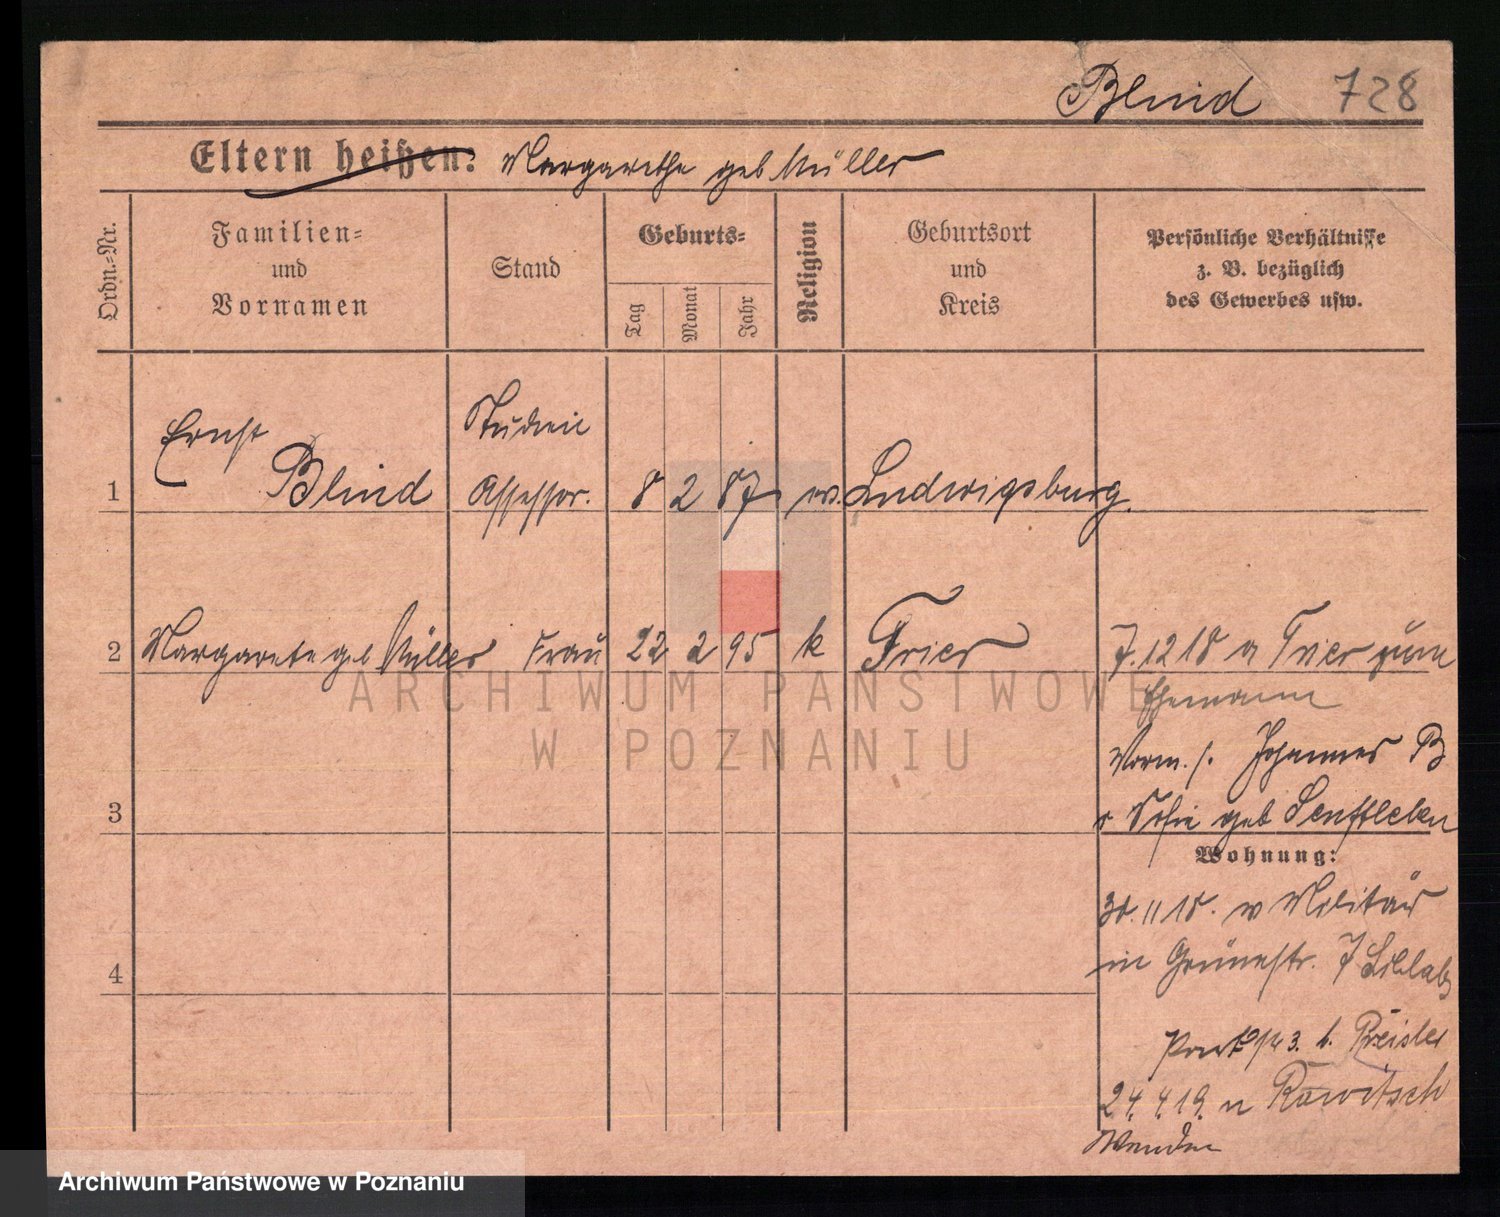 Blind 728
Eltern heißen: Margarethe geb Müller
Ordn.-Nr.
Familien-
und
Vornamen
Stand
Geburts-
Tag
Monat
Jahr
Religion
Geburtsort
und
Kreis
Persönliche Verhältnisse
z. B. bezüglich
des Gewerbes usw.
Ernst Studien
1 Blind Assessor. 8 2 87 ev. Ludwigsburg.
2 Margarete geb Müller Frau 22 2 95 k Trier 7.12 18 a Trier zum
Ehemann
Vorm. s. Johannes B
3 Sofie geb Senftleben
Wohnung:
30.11 18. v Militär
in Grünestr. 7
4
3. b. Preisler
24.4.19. n Rawitsch
Wenden
ARCHIWUM PAŃSTWOWE
W POZNANIU
Archiwum Państwowe w Poznaniu